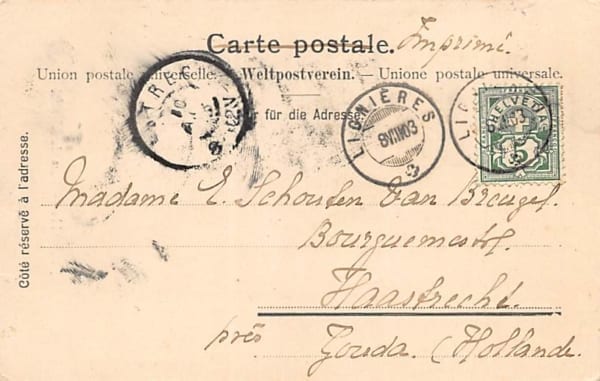 Carte postale. Imprimé.
Union postale universelle. — Weltpostverein. — Unione postale universale.
für die Adresse
Côté réservé à l'adresse.
UTREC
LIGNIÈRES
8 VII 03
LIG
HELVETIA
5
Madame E. Schouten van Breugel.
Bourguemestof.
Haastreché.
près Gouda. (Hollande.